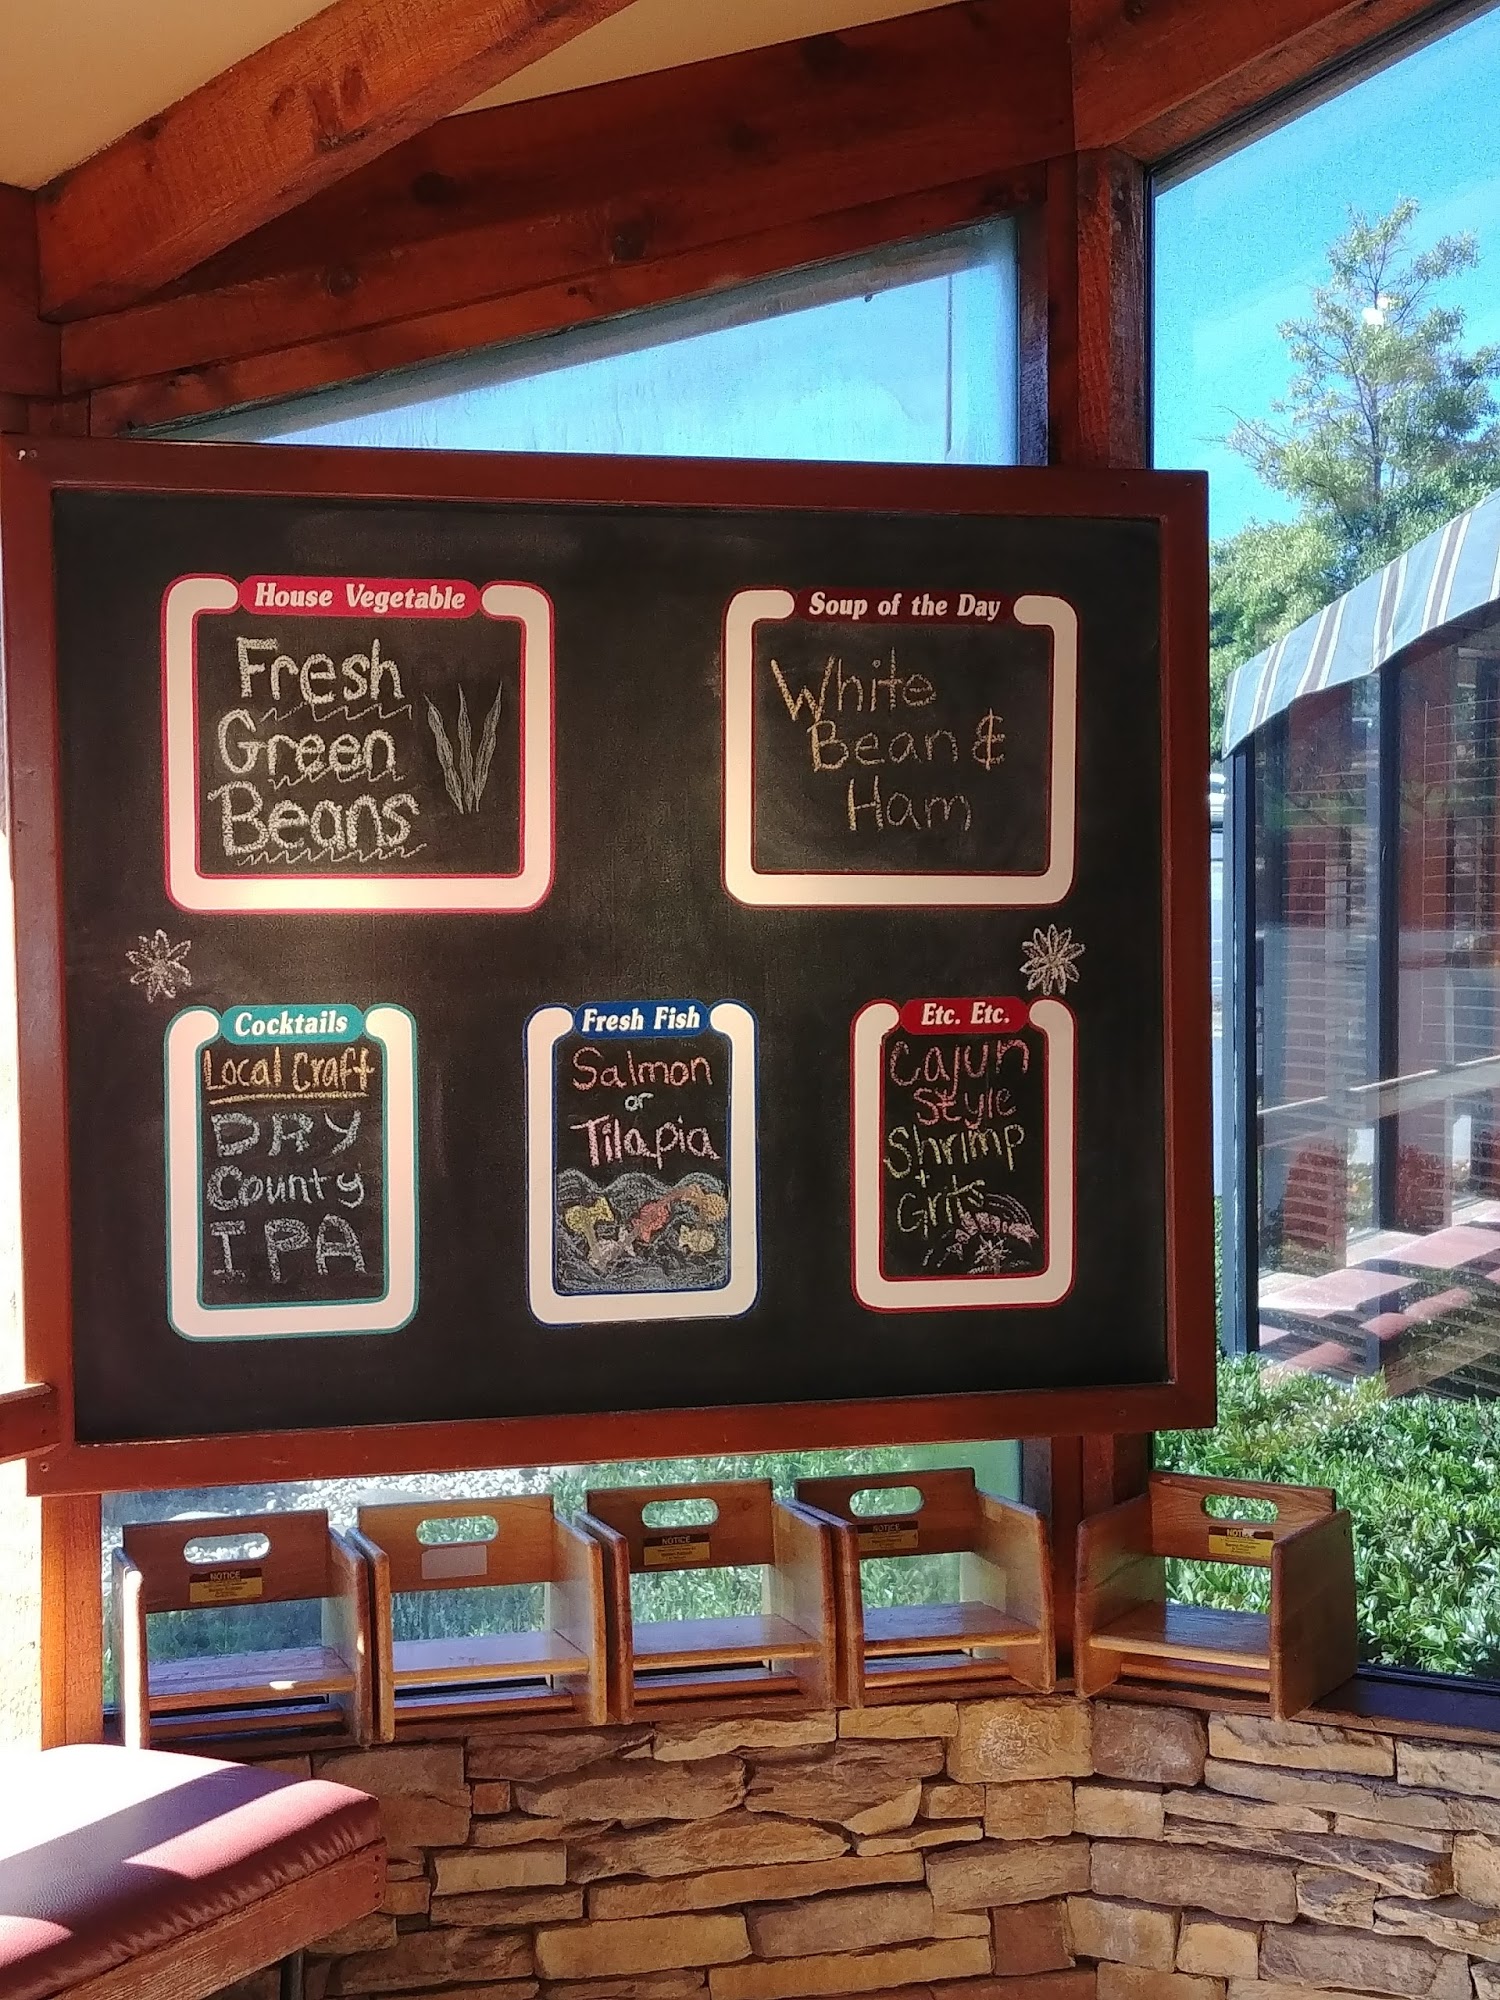 House Vegetable
Fresh
Green
Beans
Soup of the Day
White
Bean &
Ham
Cocktails
Local Craft
DRY
County
IPA
Fresh Fish
Salmon
or
Tilapia
Etc. Etc.
Cajun
Style
Shrimp
+
Grits
NOTICE
NOTICE
NOTICE
NOTICE